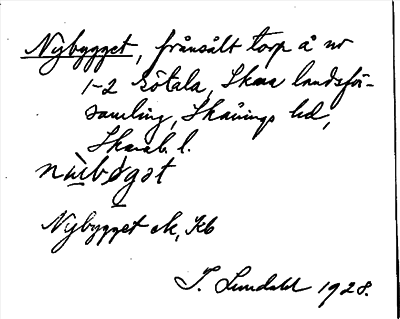 Nybygget, frånsålt torp å nr
1-2 Götala, Skara landsför-
samling, Skånings hd,
Skarab. l.
Nybygget ek, Kb
T. Lundahl 1928.